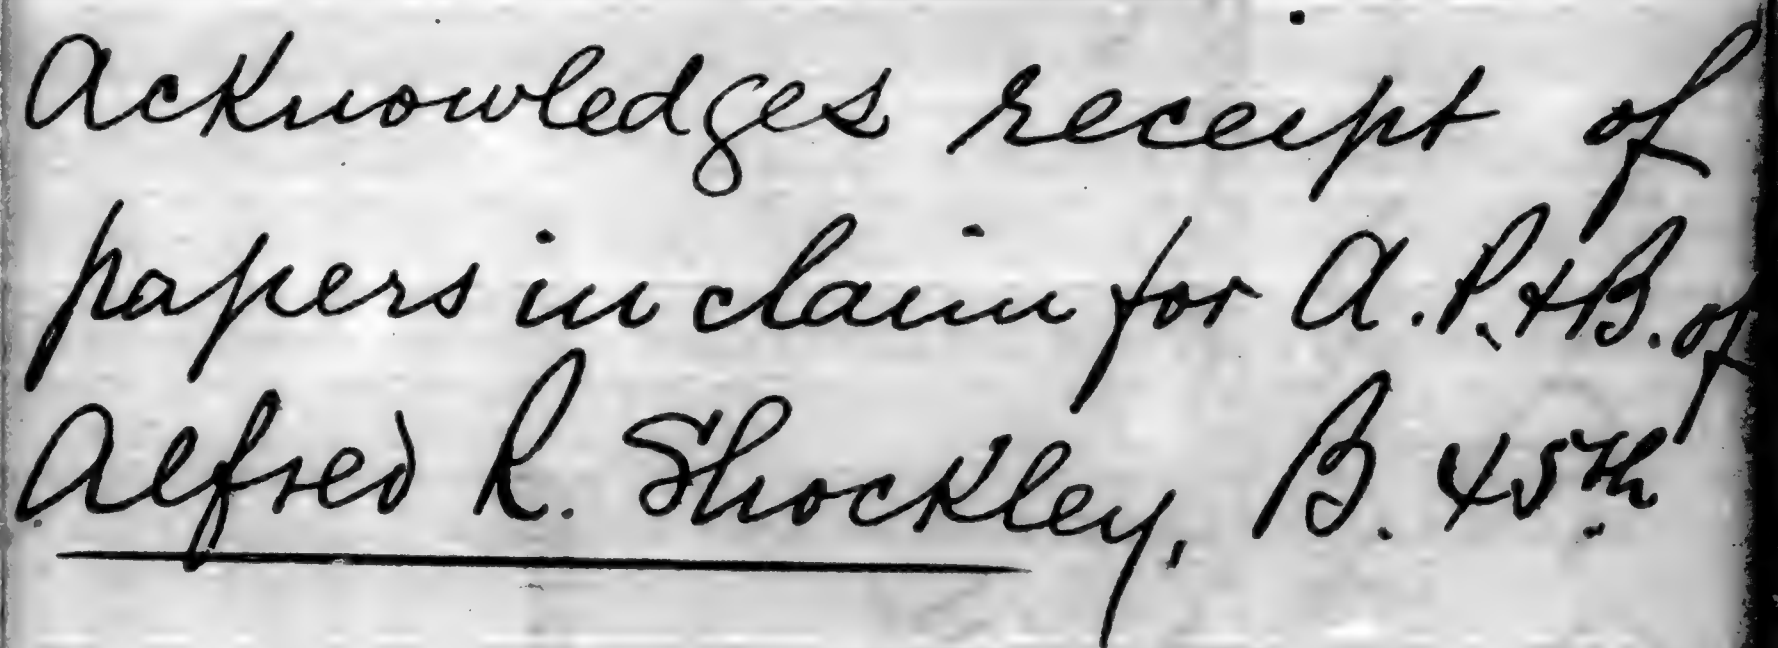 Acknowledges receipt of
papers in claim for A. P. & B. of
Alfred R. Shockley, B. 45th.